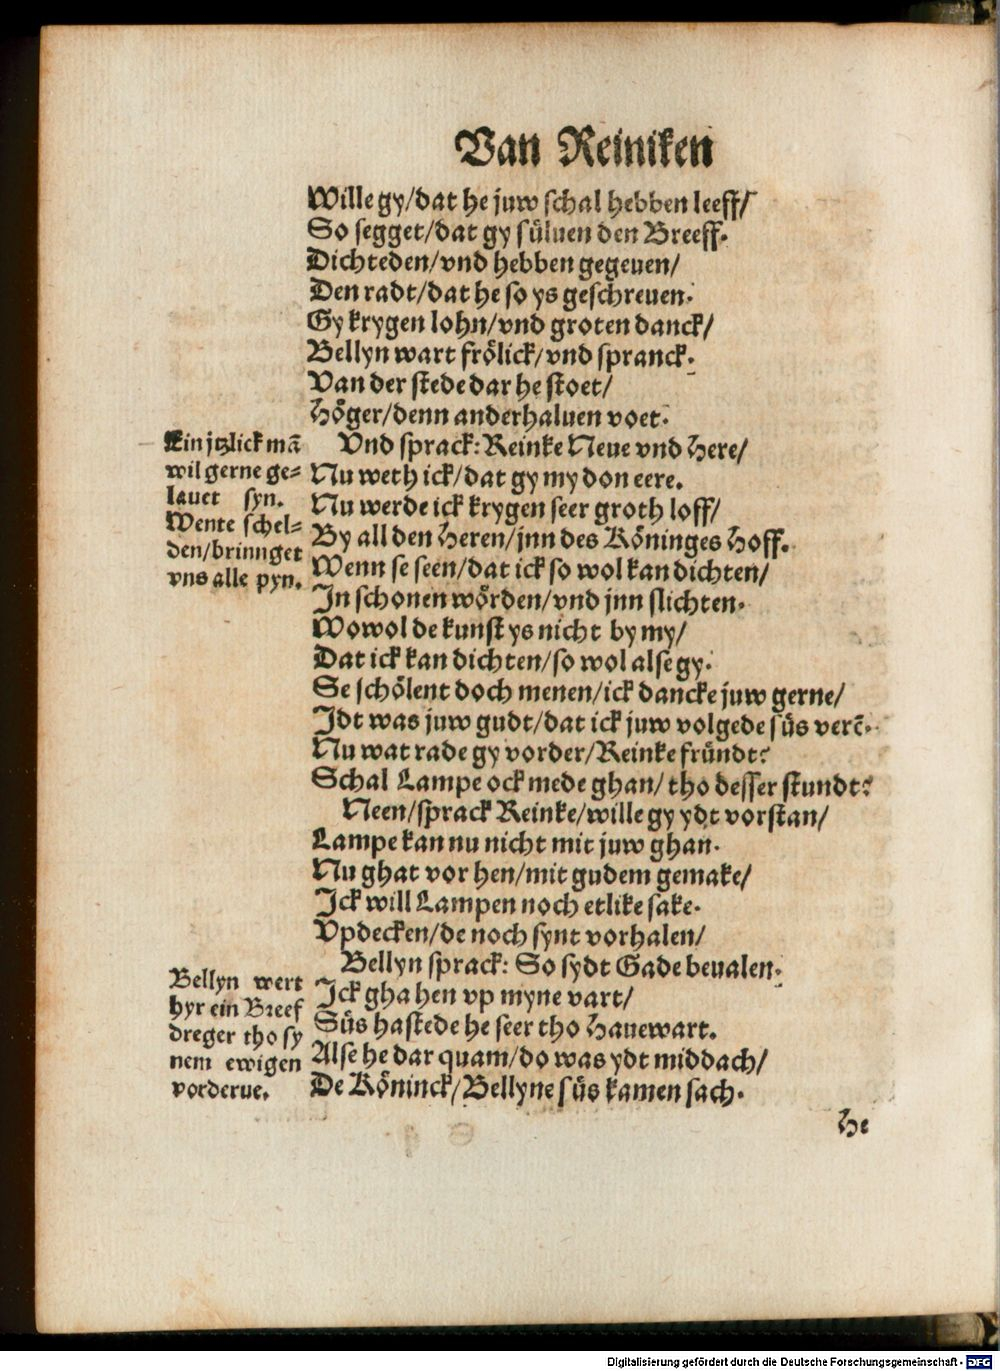 Van Reiniken
Wille gy/dat he juw schal hebben leeff/
So segget/dat gy süluen den Breeff.
Dichteden/vnd hebben gegeuen/
Den radt/dat he so ys geschreuen.
Gy krygen lohn/vnd groten danck/
Bellyn wart frölick/vnd spranck.
Van der stede dar he stoet/
Höger/denn anderhaluen voet.
Vnd sprack: Reinke Neue vnd Here/
Nu weth ick/dat gy my don eere.
Nu werde ick krygen seer groth loff/
By all den Heren/jnn des Köninges Hoff.
Wenn se seen/dat ick so wol kan dichten/
Jn schonen wörden/vnd jnn slichten.
Wowol de kunst ys nicht by my/
Dat ick kan dichten/so wol alse gy.
Se schölent doch menen/ick dancke juw gerne/
Jdt was juw gudt/dat ick juw volgede süs verē.
Nu wat rade gy vorder/Reinke fründt?
Schal Lampe ock mede ghan/tho desser stundt?
Neen/sprack Reinke/wille gy ydt vorstan/
Lampe kan nu nicht mit juw ghan.
Nu ghat vor hen/mit gudem gemake/
Jck will Lampen noch etlike sake.
Vpdecken/de noch synt vorhalen/
Bellyn sprack: So sydt Gade beualen.
Jck gha hen vp myne vart/
Süs hastede he seer tho Hauewart.
Alse he dar quam/do was ydt middach/
De Köninck/Bellyne süs kamen sach.
He
Ein jtzlick mā
wil gerne ge=
lauet syn.
Wente schel=
den/brinnget
vns alle pyn.
Bellyn wert
hyr ein Breef
dreger tho sy
nem ewigen
vorderue.
Digitalisierung gefördert durch die Deutsche Forschungsgemeinschaft - DFG